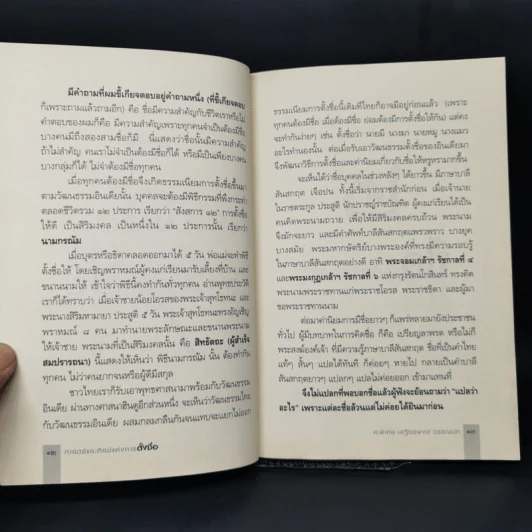 มีคำถามที่ผมขี้เกียจตอบอยู่คำถามหนึ่ง (ที่ขี้เกียจตอบ
ก็เพราะถามแล้วถามอีก) คือ ชื่อมีความสำคัญกับชีวิตเราหรือไม่
คำตอบของผมก็คือ มีความสำคัญเพราะทุกคนจำเป็นต้องมีชื่อ
บางคนมีถึงสองสามชื่อก็มี นี่แสดงว่าชื่อนั้นมีความสำคัญ
ถ้าไม่สำคัญ คนเราไม่จำเป็นต้องมีชื่อก็ได้ หรือมีเป็นเพียงบางคน
บางกลุ่มก็ได้ ไม่จำต้องมีชื่อทุกคน
เมื่อทุกคนต้องมีชื่อจึงเกิดธรรมเนียมการตั้งชื่อขึ้นมา
ตามวัฒนธรรมอินเดียนั้น บุคคลจะต้องมีพิธีกรรมที่พึงกระทำ
ตลอดชีวิตรวม ๑๒ ประการ เรียกว่า "สังสการ ๑๒" การตั้งชื่อ
ให้ดี เป็นสิริมงคล เป็นหนึ่งใน ๑๒ ประการนั้น เรียกว่า
นามกรณัม
เมื่อบุตรหรือธิดาคลอดออกมาได้ ๕ วัน พ่อแม่จะทำพิธี
ตั้งชื่อให้ โดยเชิญพราหมณ์ผู้คงแก่เรียนมารับเลี้ยงที่บ้าน และ
ขนานนามให้ เข้าใจว่าพิธีนี้คงทำกันทั่วทุกคน อ่านพุทธประวัติ
เราก็ได้ทราบว่า เมื่อเจ้าชายน้อยโอรสของพระเจ้าสุทโธทนะ และ
พระนางสิริมหามายา ประสูติ ๕ วัน พระเจ้าสุทโธทนะทรงอัญเชิญ
พราหมณ์ ๘ คน มาทำนายพระลักษณะและขนานพระนาม
ให้เจ้าชาย พระนามที่เป็นสิริมงคลนั้น คือ สิทธัตถะ (ผู้สำเร็จ
สมปรารถนา) นี้แสดงให้เห็นว่า พิธีนามกรณัม นั้น ต้องทำกัน
ทุกคน ไม่ว่าคนยากจนหรือผู้ดีมีสกุล
ชาวไทยเราก็รับเอาพุทธศาสนามาพร้อมกับวัฒนธรรม
อินเดีย ผ่านทางศาสนาฮินดูอีกส่วนหนึ่ง จะเห็นว่าวัฒนธรรมไทย
กับวัฒนธรรมอินเดีย ผสมกลมกลืนกันจนแทบจะแยกไม่ออก
๑๒ ศาสตร์และศิลป์แห่งการตั้งชื่อ
ธรรมเนียมการตั้งชื่อนี้เดิมที่ไทยก็อาจมีอยู่ก่อนแล้ว (เพราะ
ทุกคนต้องมีชื่อ เมื่อต้องมีชื่อ ย่อมต้องมีการตั้งชื่อให้กัน) แต่คง
จะทำกันง่ายๆ เช่น ตั้งชื่อว่า นายมี นางมา นายหมู นางแมว
อะไรทำนองนั้น ต่อเมื่อรับเอาวัฒนธรรมตั้งชื่อของอินเดียมา
จึงพัฒนาวิธีการตั้งชื่อและค่านิยมเกี่ยวกับชื่อให้หรูหรามากขึ้น
จะเห็นได้ว่าชื่อบุคคลในช่วงหลังๆ ได้ยาวขึ้น มีภาษาบาลี
สันสกฤต เจือปน ทั้งนี้เริ่มจากราชสำนักก่อน เมื่อเจ้านาย
ในราชตระกูล ประสูติ นักปราชญ์ราชบัณฑิต ผู้คงแก่เรียนได้เป็น
คนคิดพระนามถวาย เพื่อให้มีสิริมงคลครบถ้วน พระนาม
จึงมักจะยาว และมีคำศัพท์บาลีสันสกฤตแพรวพราว บางยุค
บางสมัย พระมหากษัตริย์บางพระองค์ที่ทรงมีความรอบรู้
ในภาษาบาลีสันสกฤตอย่างดี อาทิ พระจอมเกล้าฯ รัชกาลที่ ๔
และพระมงกุฎเกล้าฯ รัชกาลที่ ๖ แห่งกรุงรัตนโกสินทร์ ทรงคิด
พระนามพระราชทานแก่พระราชโอรส พระราชธิดา และผู้มา
ขอพระราชทานนาม
ต่อมาค่านิยมการมีชื่อยาวๆ ก็แพร่หลายมายังประชาชน
ทั่วไป ผู้มีบทบาทในการคิดชื่อ ก็คือ เปรียญลาพรต หรือไม่ก็
พระสงฆ์องค์เจ้า ที่มีความรู้ภาษาบาลีสันสกฤต ชื่อที่เป็นคำไทย
แท้ๆ สั้นๆ แปลได้ทันที ก็ค่อยๆ หายไป กลายเป็นคำบาลี
สันสกฤตยาวๆ แปลกๆ แปลไม่ค่อยออก เข้ามาแทนที่
จึงไม่แปลกที่พอบอกชื่อแล้วผู้ฟังจะย้อนถามว่า "แปลว่า
อะไร" เพราะแต่ละชื่อล้วนแต่ไม่ค่อยได้ยินมาก่อน
๑๓